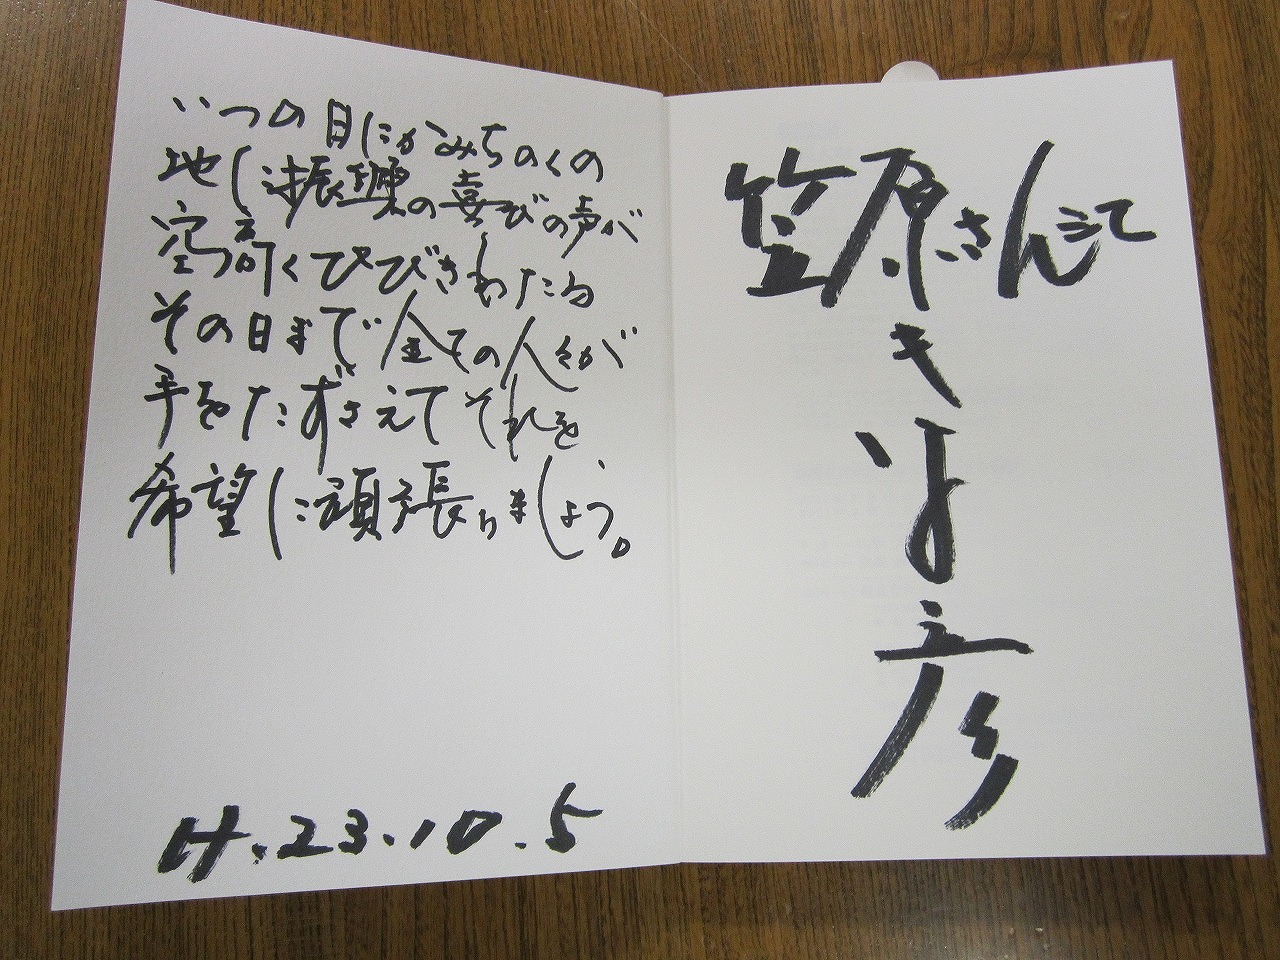 いつの日にかみちのくの
地に振の喜びの声が
空高くひびきわたる
その日まで全ての人々が
手をたずさえてそれを
希望に頑張りましょう。
H.23.10.5
笠原さん
きよ彦